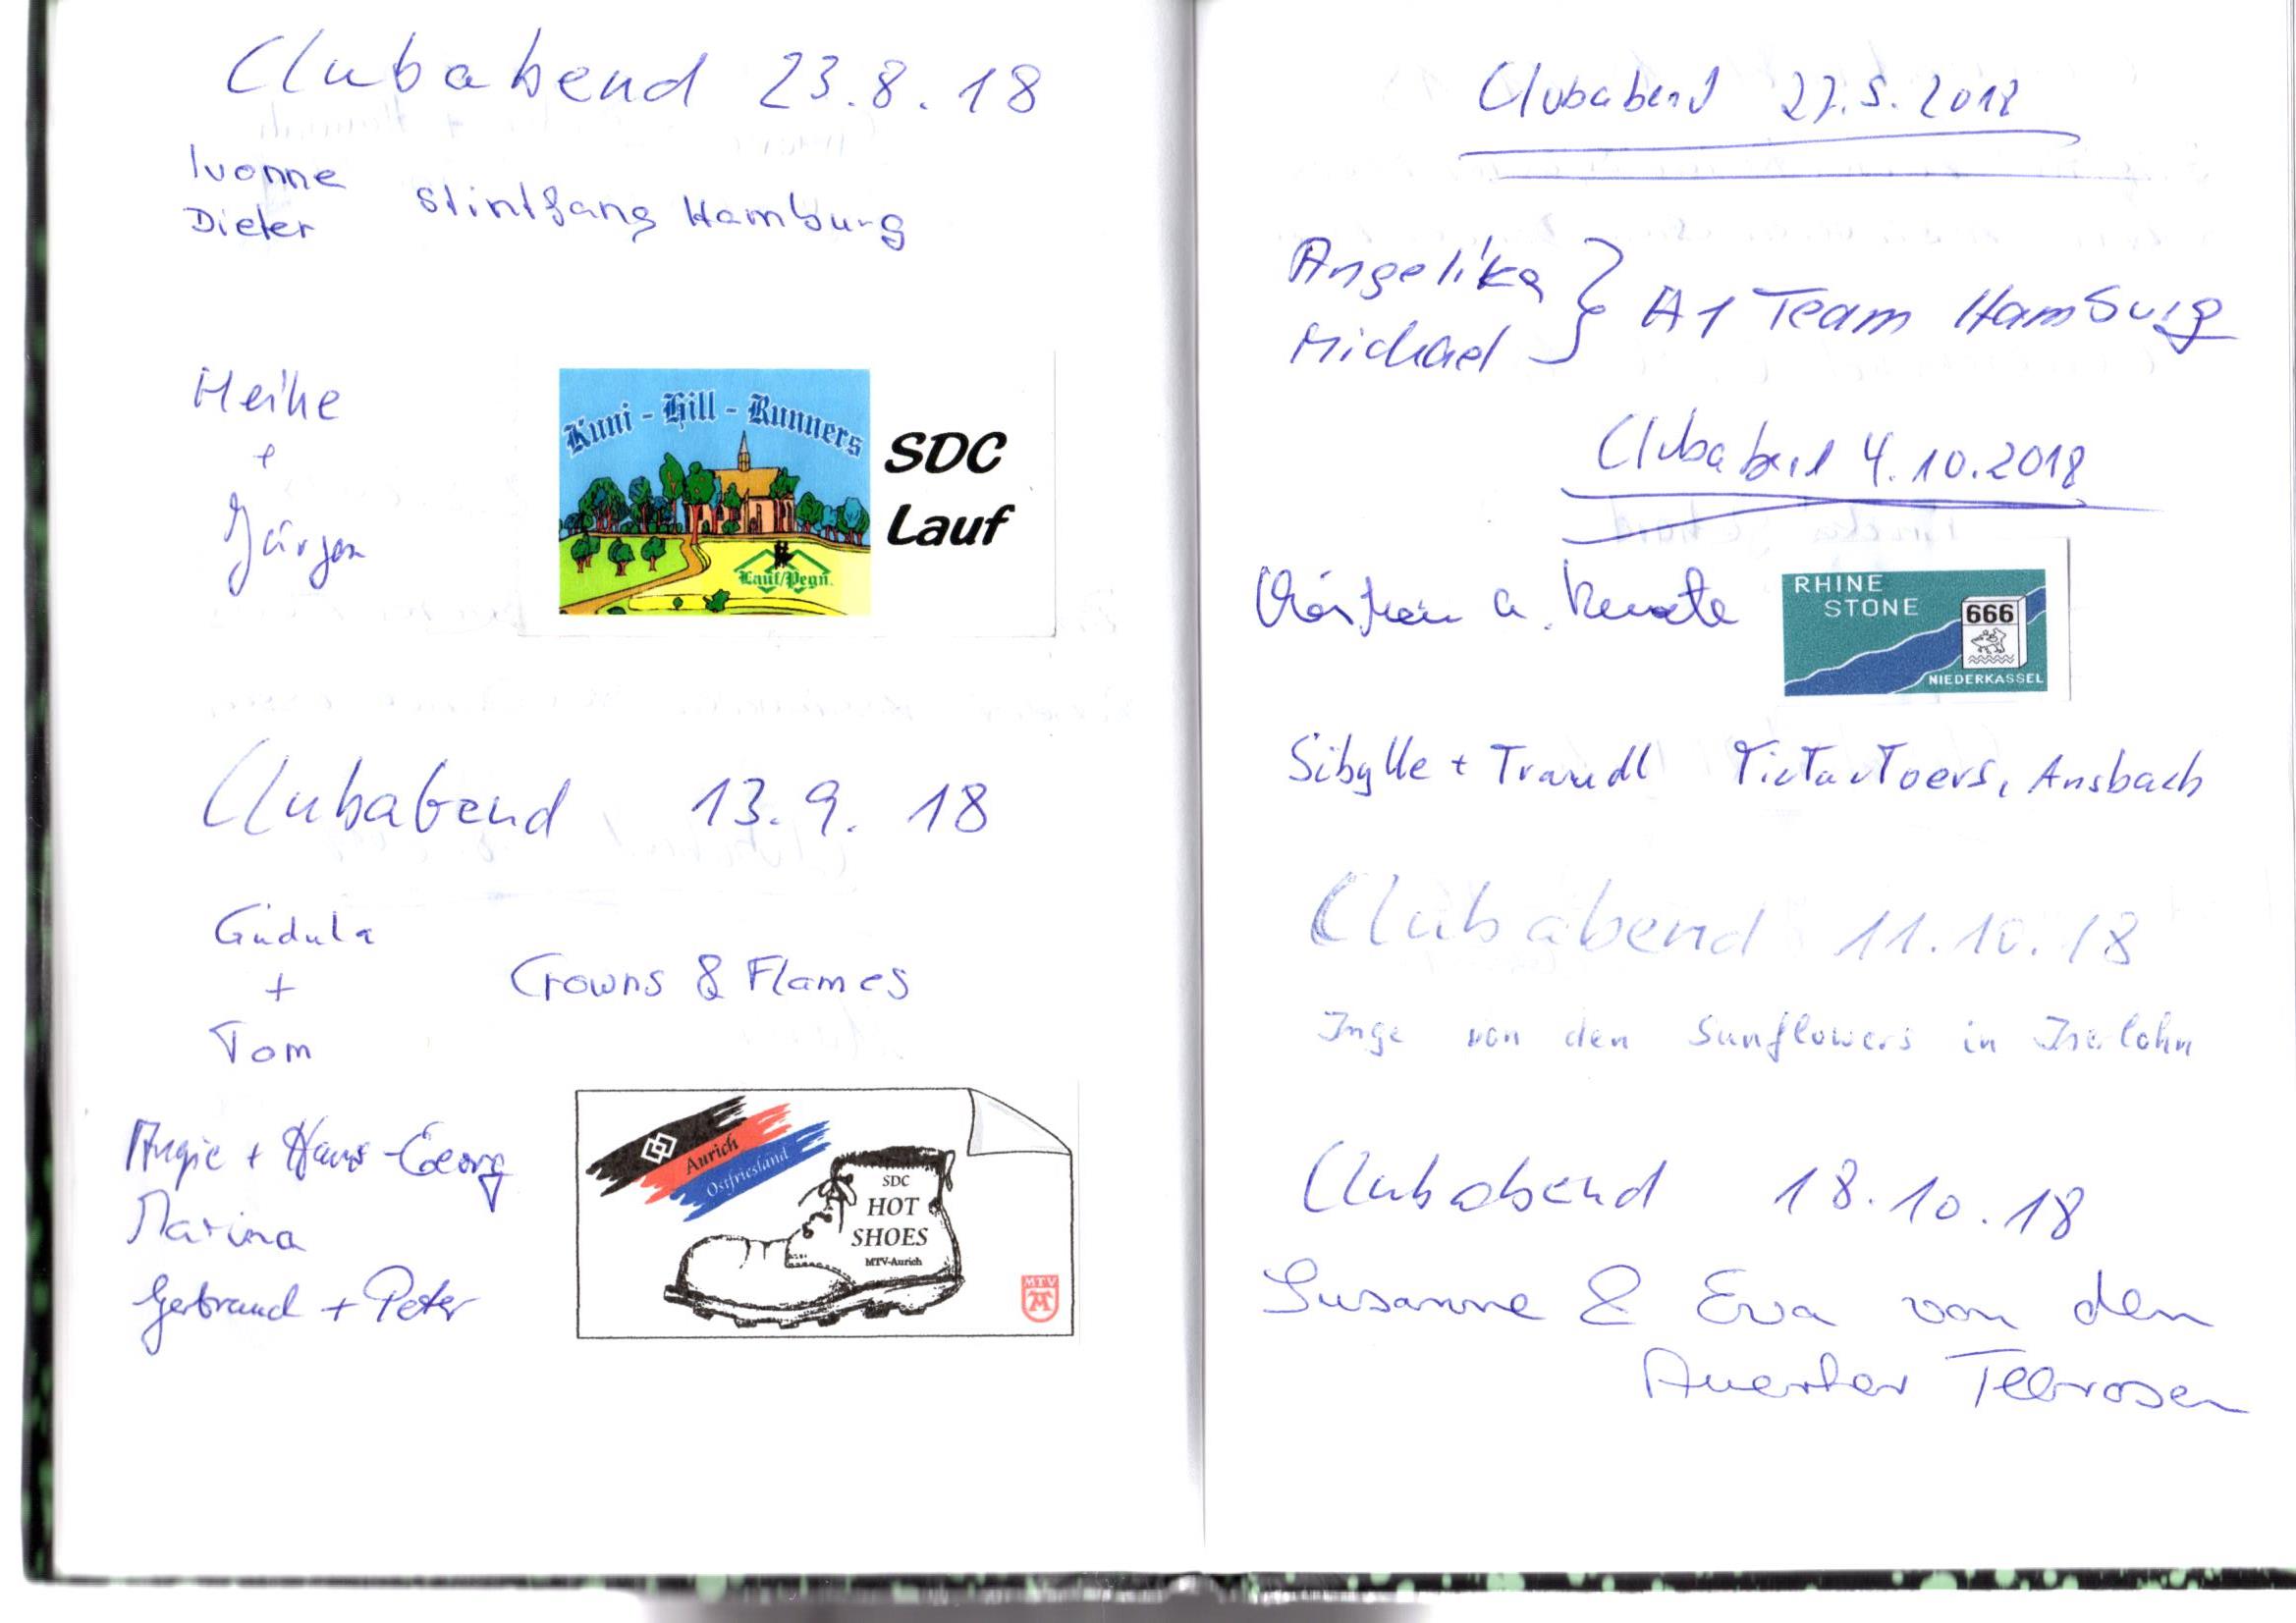 Clubabend 23.8.18
Ivonne
Dieter
Stintfang Hamburg
Heike
+
Jürgen
Kuni - Hill - Runners
SDC
Lauf
Lauf/Pegn.
Clubabend 13.9.18
Gudula
+
Tom
Crowns & Flames
Angie + Hans-Georg
Marina
Gerbrand + Peter
Aurich
Ostfriesland
SDC
HOT
SHOES
MTV-Aurich
MTV
Clubabend 27.9.2018
Angelika
Michael
A1 Team Hamburg
Clubabend 4.10.2018
u. Renate
RHINE
STONE
666
NIEDERKASSEL
Sibylle + Traudl TicTacToers, Ansbach
Clubabend 11.10.18
Inge von den Sunflowers in Iserlohn
Clubabend 18.10.18
Susanne & Eva von den